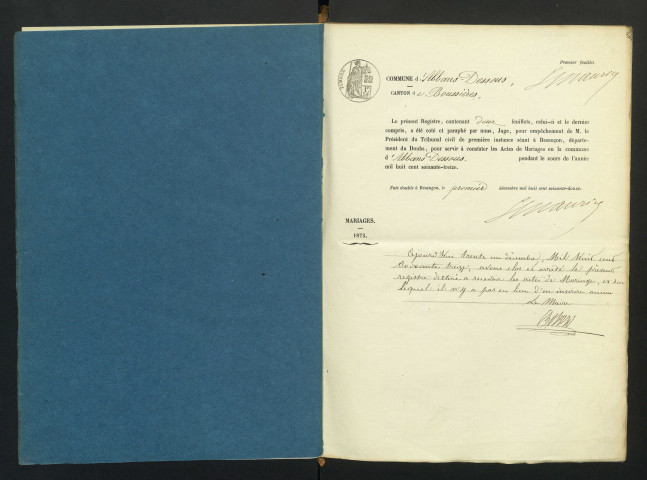 Premier feuillet
TIMBRE
COMMUNE d'Abbans-Dessous.
CANTON de Boussières.
Le présent Registre, contenant deux feuillets, celui-ci et le dernier
compris, a été coté et paraphé par nous, Juge, pour empêchement de M. le
Président du Tribunal civil de première instance séant à Besançon, départe-
ment du Doubs, pour servir à constater les Actes de Mariages en la commune
d'Abbans-Dessous pendant le cours de l'année
mil huit cent soixante-treize.
Fait double à Besançon, le premier décembre mil huit cent soixante-douze.
MARIAGES.
1873.
Aujourd'hui trente un décembre, Mil huit cent
soixante treize, avons clos et arrêté le présent
registre destiné a recevoir les actes de Mariage, et sur
lequel il n'y a pas eu lieu d'en inscrire aucun
Le Maire